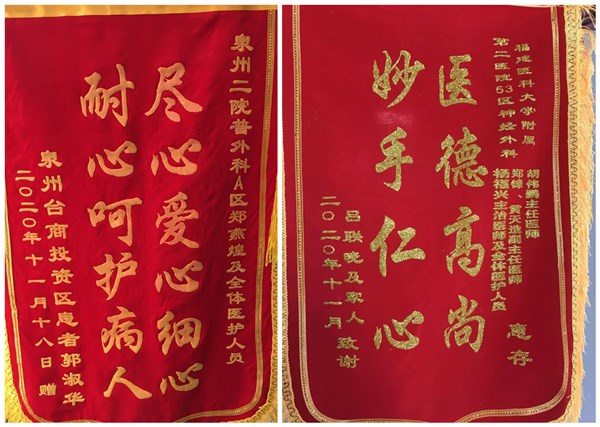 泉州二院普外科A区郑燕煌及全体医护人员
尽心爱心细心
耐心呵护病人
泉州台商投资区患者郭淑华
二〇二〇年十一月十八日 赠
福建医科大学附属
第二医院53区神经外科
胡伟鹏主任医师
郑峰、黄天造副主任医师
杨福兴主治医师及全体医护人员
惠存
医德高尚
妙手仁心
吕联晓及家人 致谢
二〇二〇年十一月